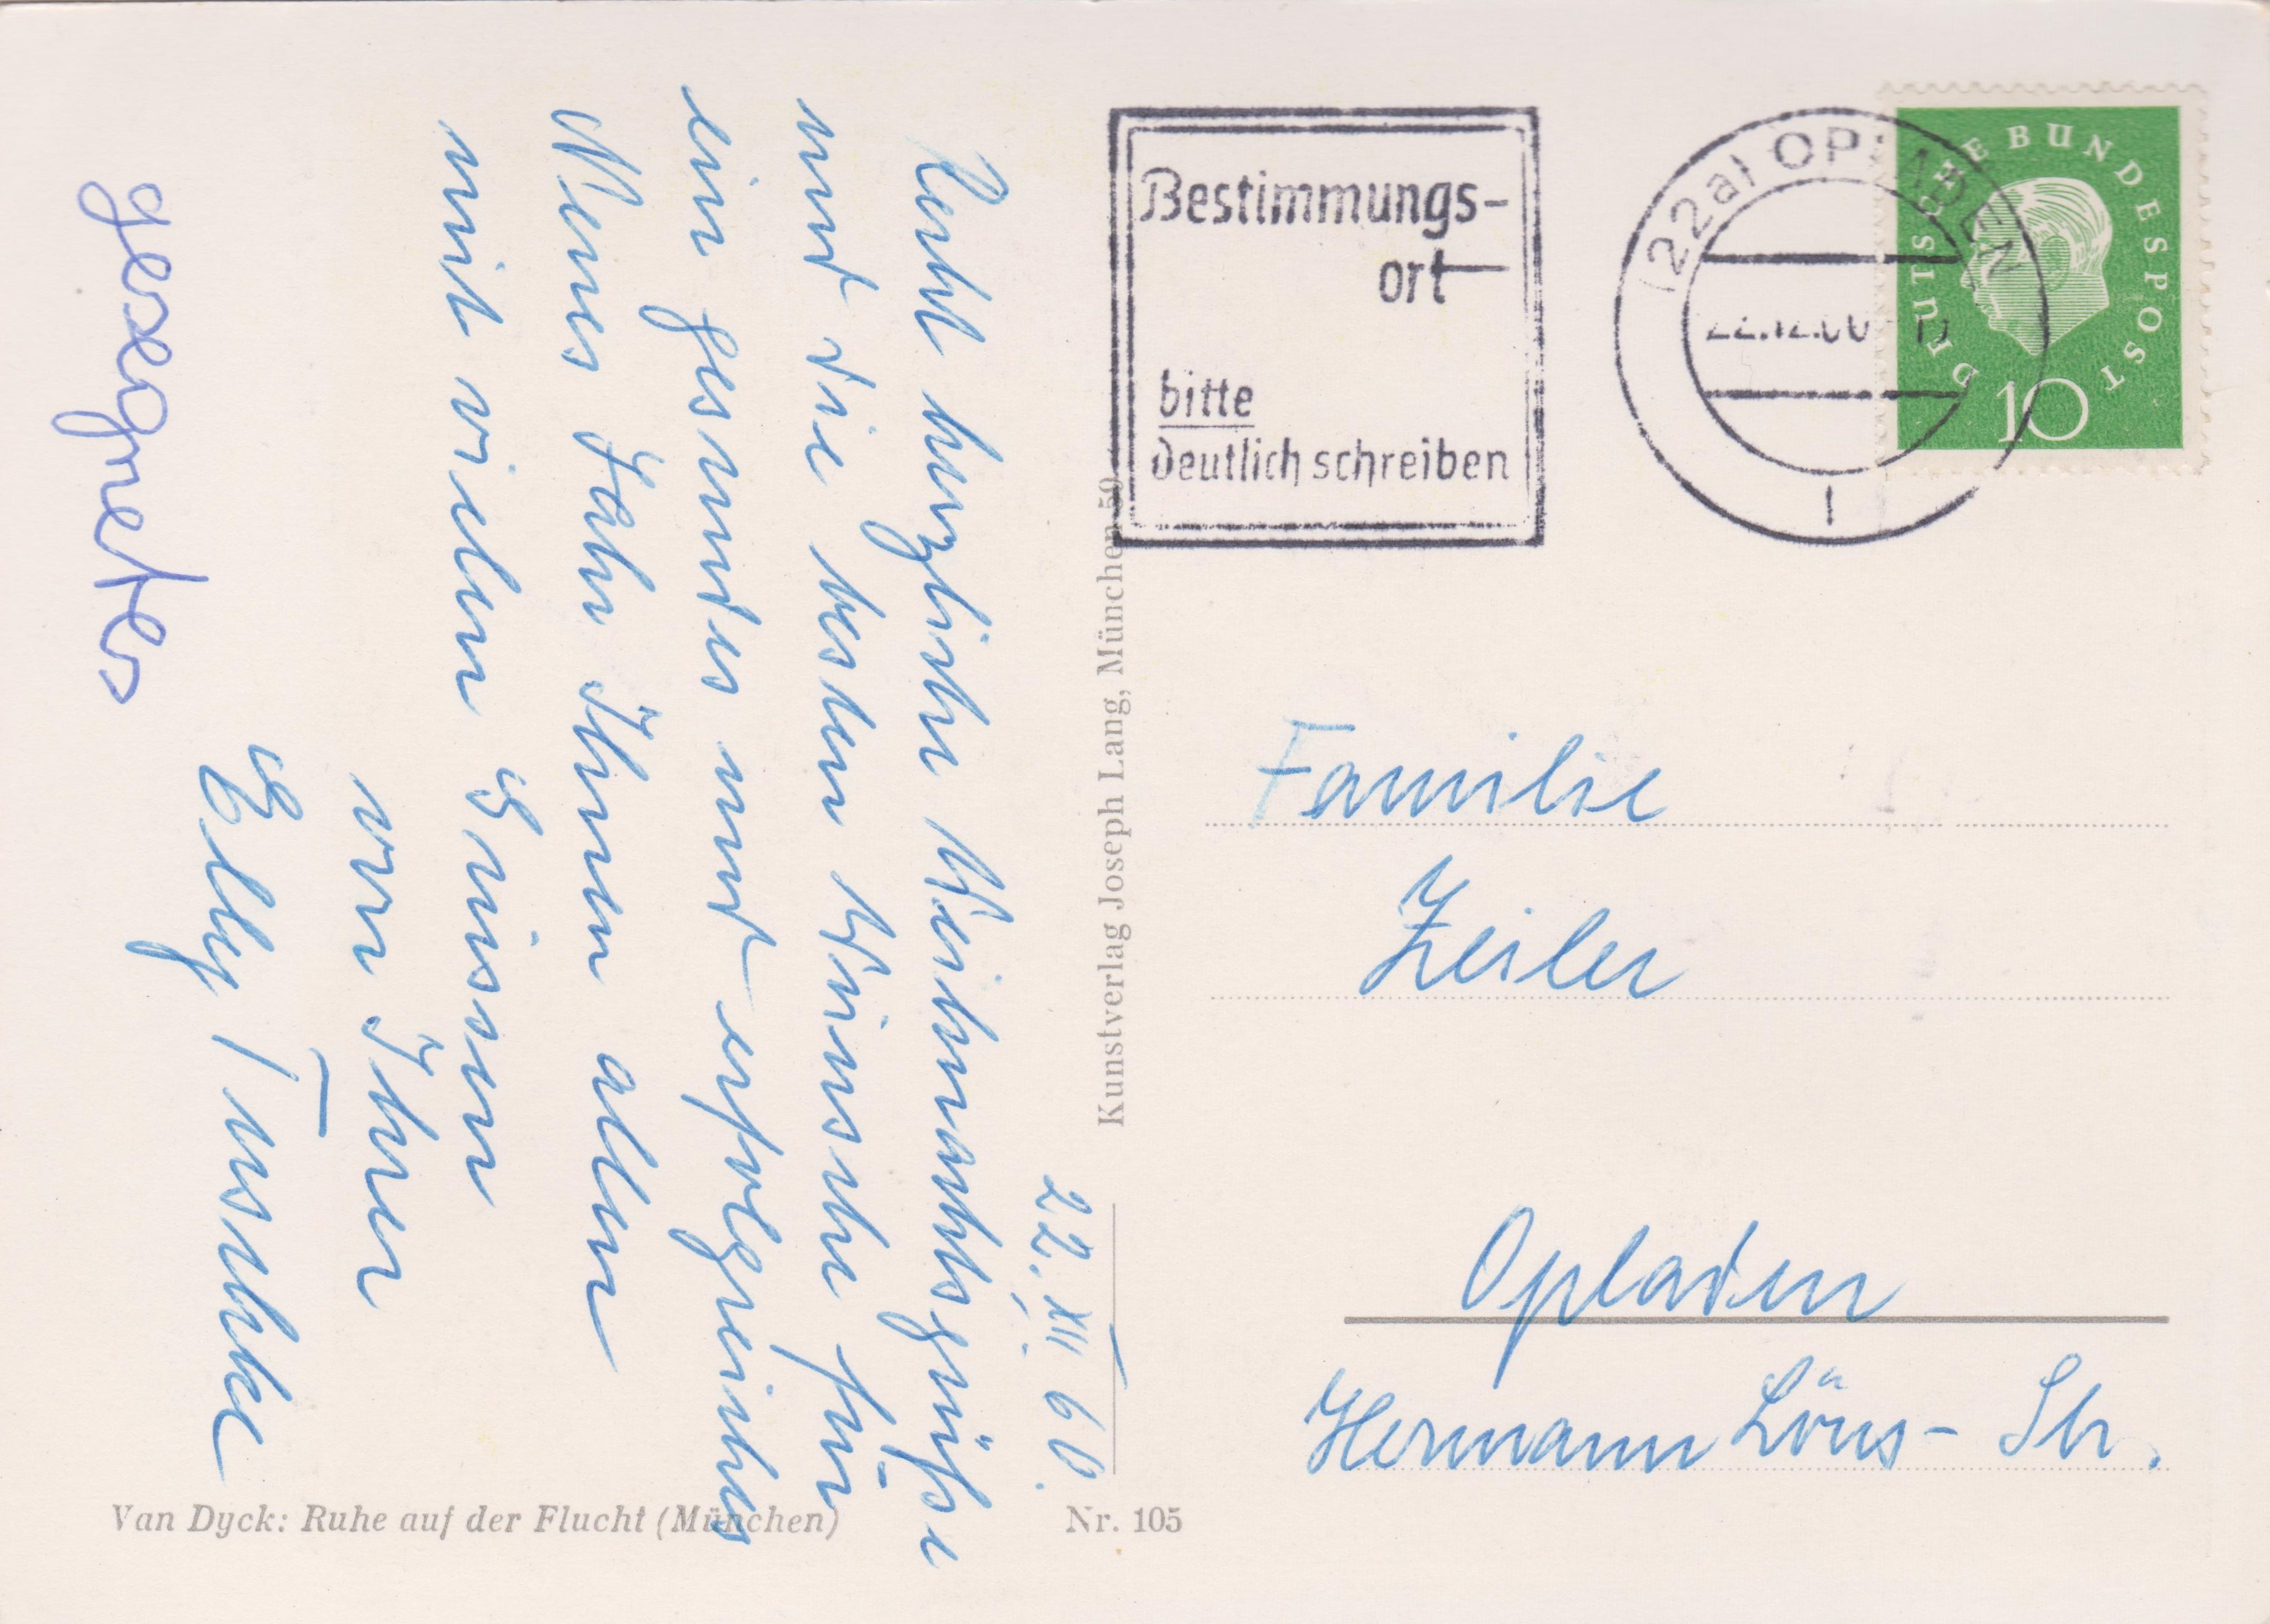 22. XII. 60.
Recht herzliche Weihnachtsgrüße
und die besten Wünsche für
ein gesundes und erfolgreiches
Neues Jahr Ihnen allen
mit vielen Grüssen
von Ihrer
Elly
gesegnetes
Kunstverlag Joseph Lang, München 59
Van Dyck: Ruhe auf der Flucht (München)
Nr. 105
Bestimmungs-
ort
bitte
deutlich schreiben
(22a) OPLADEN
22.12.60
DEUTSCHE BUNDESPOST
10
Familie
Zeiler
Opladen
Hermann Löns-Str.